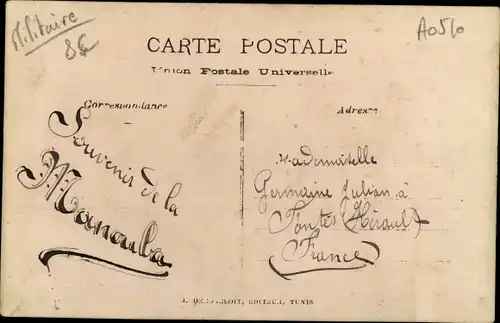 Militaire
8€
A0510
CARTE POSTALE
Union Postale Universelle
Correspondance
Adresse
Souvenir de la
Manouba
Mademoiselle
Germaine Julian à
Fontès Hérault
France
EDITEUR, TUNIS